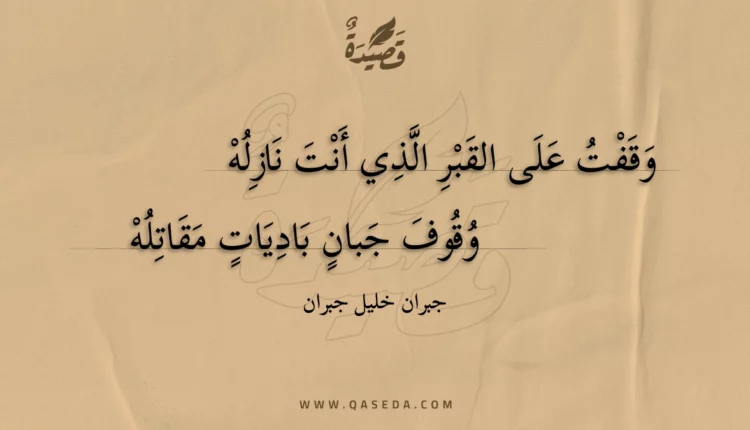 قَصِيْدَةٌ
وَقَفْتُ عَلَى القَبْرِ الَّذِي أَنْتَ نَازِلُهْ
وُقُوفَ جَبانٍ بَادِيَاتٍ مَقَاتِلُهْ
جبران خليل جبران
WWW.QASEDA.COM